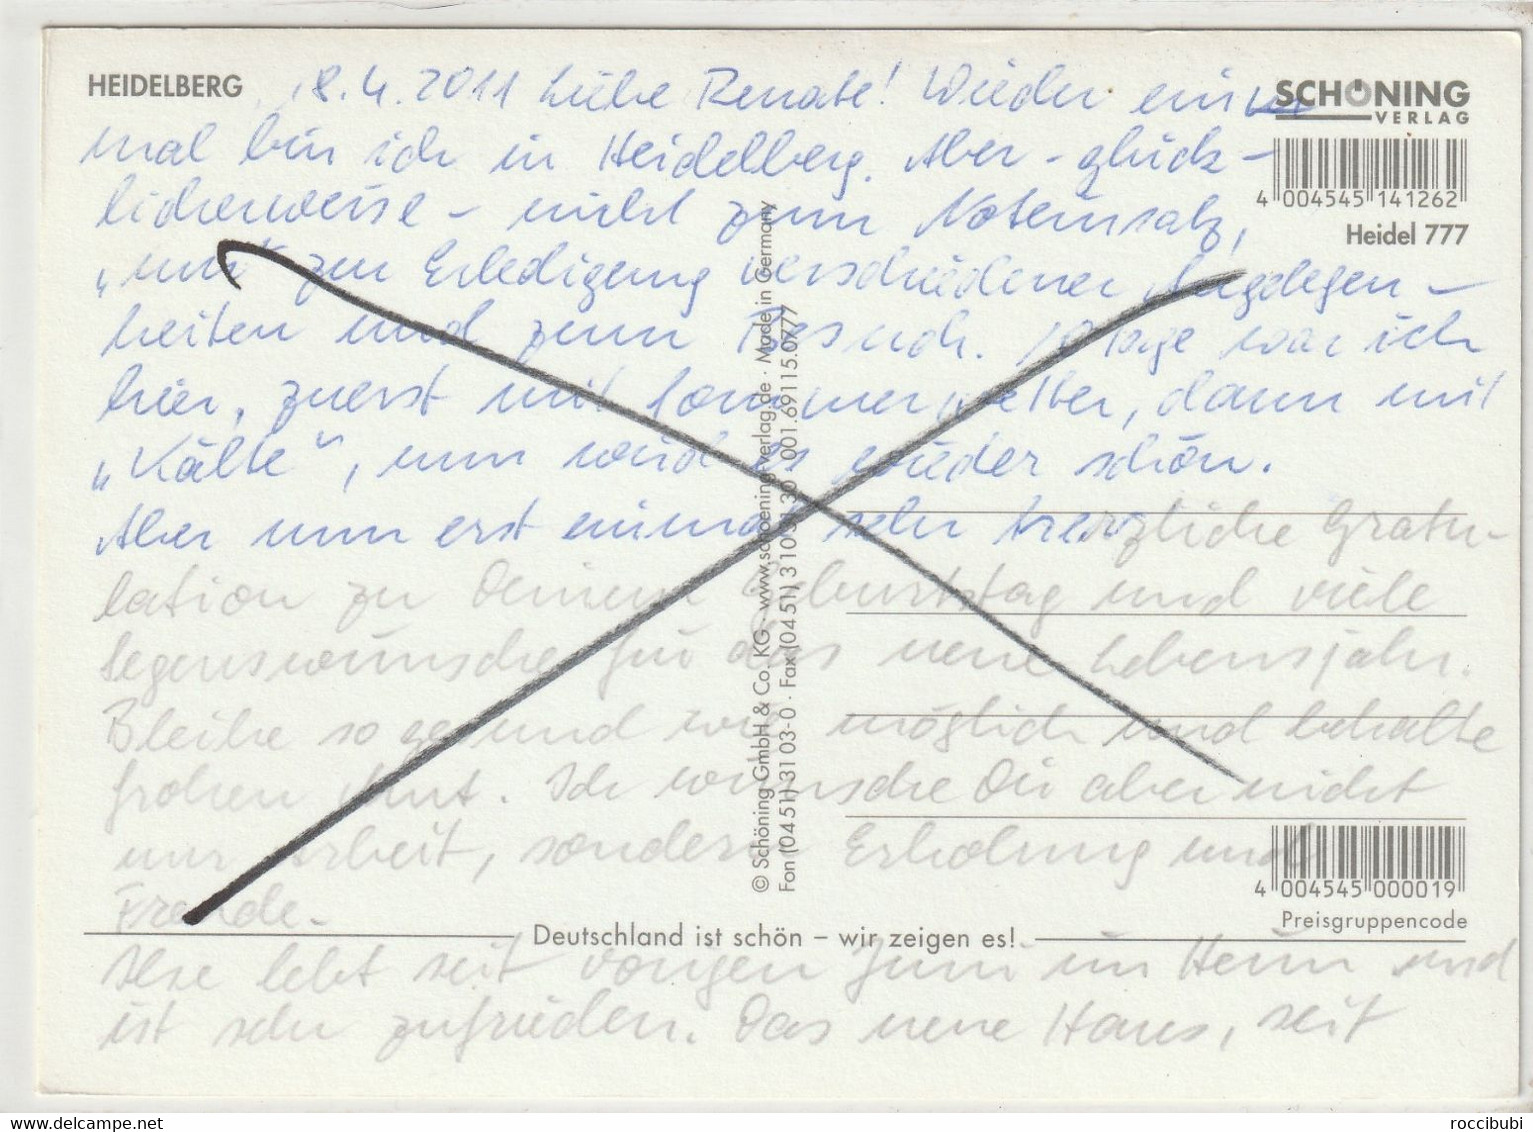 HEIDELBERG 18.4.2011 Liebe Renate! Wieder ein
SCHÖNING
VERLAG
mal bin ich in Heidelberg. Aber - glück-
4 004545 141262
licherweise - nicht zum Noteinsatz,
Heidel 777
"nur" zur Erledigung verschiedener Angelegen-
heiten und zum Besuch. 10 Tage war ich
hier, zuerst mit Sommerwetter, dann mit
„Kälte", nun wird es wieder schön.
Aber nun erst einmal sehr herzliche Gratu-
lation zu Deinem Geburtstag und viele
Segenswünsche für das neue Lebensjahr.
Bleibe so gesund wie möglich und behalte
frohen Mut. Ich wünsche Dir aber nicht
nur Arbeit, sondern Erholung und
Freude.
4 004545 000019
Preisgruppencode
Deutschland ist schön – wir zeigen es!
Ilse lebt seit vorigen Juni im Heim und
ist sehr zufrieden. Das neue Haus, seit
© Schöning GmbH & Co. KG · www.schoening-verlag.de · Made in Germany
Fon (0451) 31 03-0 · Fax (0451) 31 03 31 30 · 001.69115.0777
www.delcampe.net
roccibubi